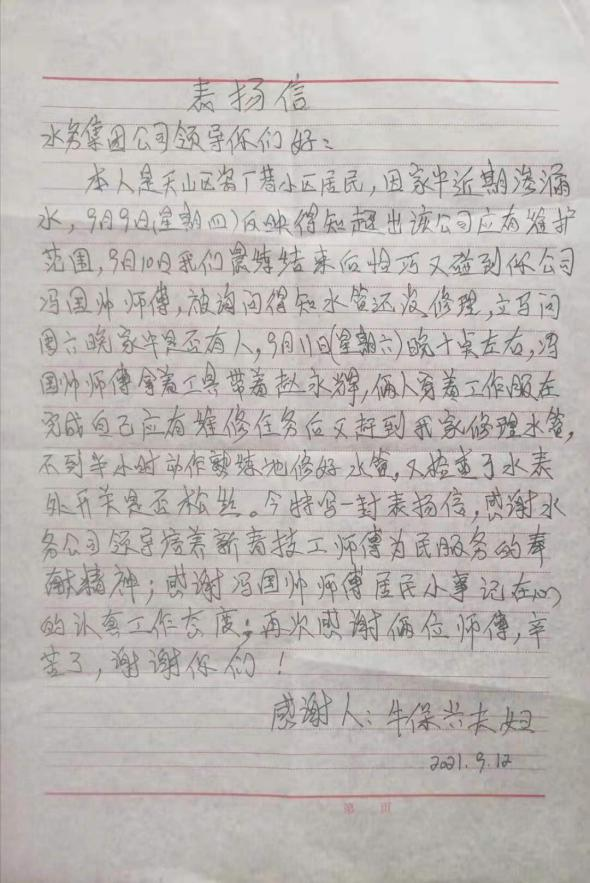 表扬信
水务集团公司领导你们好：
本人是天山区客丁巷小区居民，因家中近期渗漏
水，9月9日(星期四)反映得知超出该公司应有维护
范围，9月10日我们晨练结束后恰巧又碰到你公司
冯国帅师傅，被询问得知水管还没修理，立马问
周六晚家中是否有人，9月11日(星期六)晚十点左右，冯
国帅师傅拿着工具带着赵永辉，俩人穿着工作服在
完成自己应有维修任务后又赶到我家修理水管，
不到半小时动作熟练地修好水管，又检查了水表
处开关是否松丝。今特写一封表扬信，感谢水
务公司领导培养新青技工师傅为民服务的奉
献精神；感谢冯国帅师傅居民小事记在心
的认真工作态度；再次感谢俩位师傅，辛
苦了，谢谢你们！
感谢人：牛保兴夫妇
2021.9.12
第 页